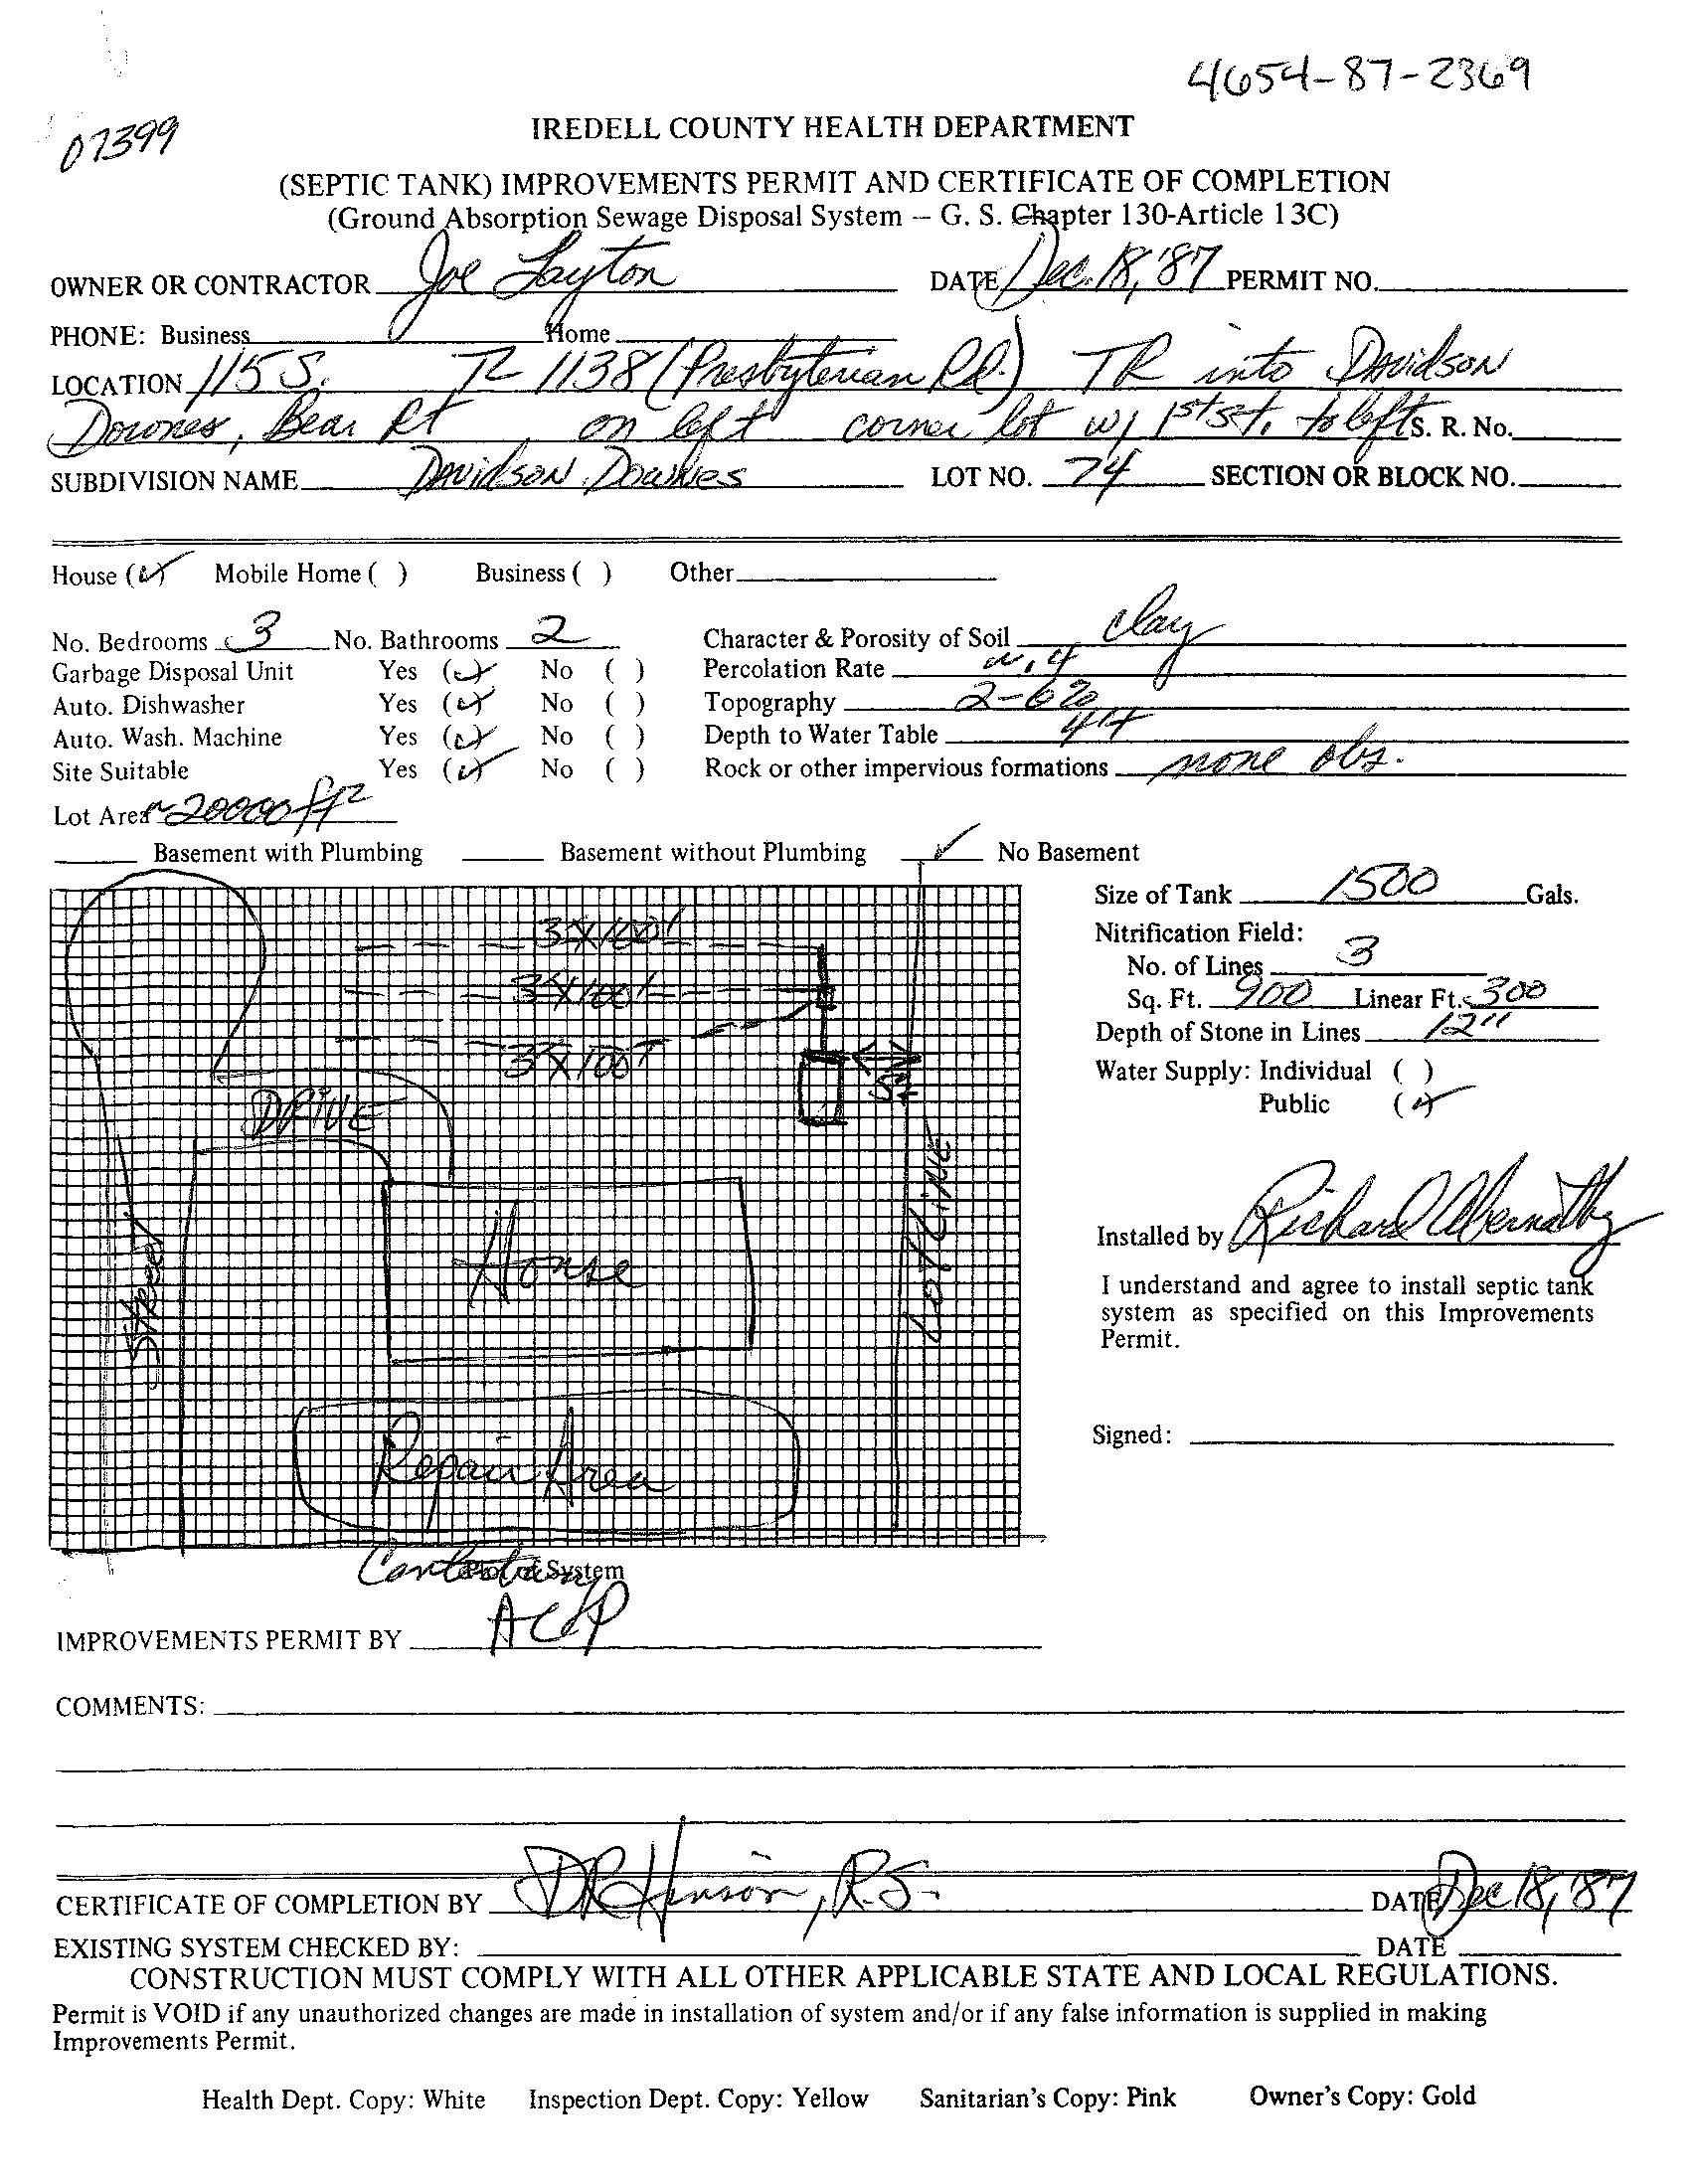 4654-87-2369
07399
IREDELL COUNTY HEALTH DEPARTMENT
(SEPTIC TANK) IMPROVEMENTS PERMIT AND CERTIFICATE OF COMPLETION
(Ground Absorption Sewage Disposal System – G. S. Chapter 130-Article 13C)
OWNER OR CONTRACTOR Joe Layton DATE Dec. 18, '87 PERMIT NO.
PHONE: Business Home
LOCATION 115 S. TL 1138 (Presbyterian Rd.) TR into Davidson
Downes, Bear Rt on left corner lot w/ 1st st. to left S. R. No.
SUBDIVISION NAME Davidson Downes LOT NO. 74 SECTION OR BLOCK NO.
House (✓) Mobile Home ( ) Business ( ) Other
No. Bedrooms 3 No. Bathrooms 2 Character & Porosity of Soil clay
Garbage Disposal Unit Yes (✓) No ( ) Percolation Rate .4
Auto. Dishwasher Yes (✓) No ( ) Topography 2-6%
Auto. Wash. Machine Yes (✓) No ( ) Depth to Water Table
Site Suitable Yes (✓) No ( ) Rock or other impervious formations none obs.
Lot Area ~20000 ft²
Basement with Plumbing Basement without Plumbing ✓ No Basement
Size of Tank 1500 Gals.
Nitrification Field:
No. of Lines 3
Sq. Ft. 900 Linear Ft. 300
Depth of Stone in Lines 12"
Water Supply: Individual ( )
Public (✓)
3'X100'
3'X100'
3'X100'
DRIVE
House
Street
Lot Line
Repair Area
Installed by Richard Abernathy
I understand and agree to install septic tank
system as specified on this Improvements
Permit.
Signed:
Plot of System
IMPROVEMENTS PERMIT BY
COMMENTS:
CERTIFICATE OF COMPLETION BY DR Hinson, R.S. DATE Dec 18, '87
EXISTING SYSTEM CHECKED BY: DATE
CONSTRUCTION MUST COMPLY WITH ALL OTHER APPLICABLE STATE AND LOCAL REGULATIONS.
Permit is VOID if any unauthorized changes are made in installation of system and/or if any false information is supplied in making
Improvements Permit.
Health Dept. Copy: White Inspection Dept. Copy: Yellow Sanitarian's Copy: Pink Owner's Copy: Gold